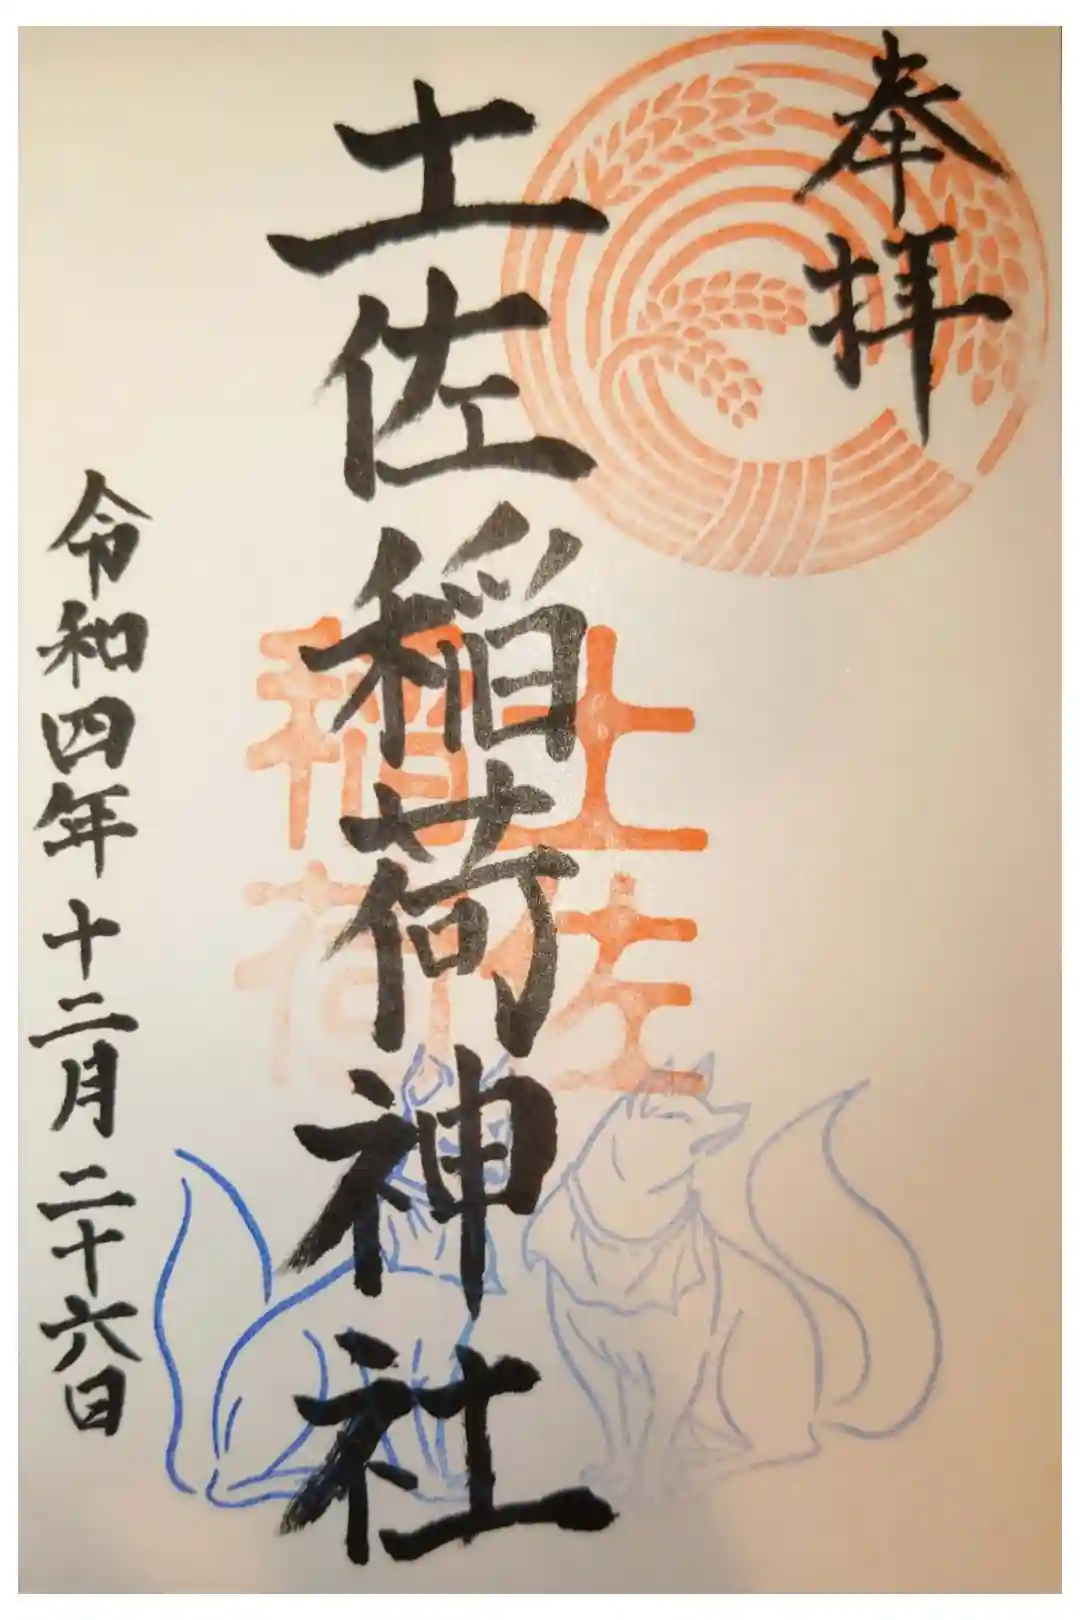 奉拝
土佐稲荷神社
土佐
稲荷
令和四年十二月二十六日